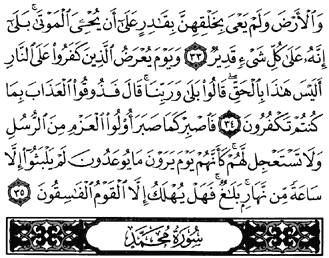 وَٱلْأَرْضَ وَلَمْ يَعْىَ بِخَلْقِهِنَّ بِقَٰدِرٍ عَلَىٰٓ أَن يُحْـِۧىَ ٱلْمَوْتَىٰ ۚ بَلَىٰٓ
إِنَّهُۥ عَلَىٰ كُلِّ شَىْءٍ قَدِيرٌ ٣٣ وَيَوْمَ يُعْرَضُ ٱلَّذِينَ كَفَرُوا۟ عَلَى ٱلنَّارِ
أَلَيْسَ هَٰذَا بِٱلْحَقِّ ۖ قَالُوا۟ بَلَىٰ وَرَبِّنَا ۚ قَالَ فَذُوقُوا۟ ٱلْعَذَابَ بِمَا
كُنتُمْ تَكْفُرُونَ ٣٤ فَٱصْبِرْ كَمَا صَبَرَ أُو۟لُوا۟ ٱلْعَزْمِ مِنَ ٱلرُّسُلِ
وَلَا تَسْتَعْجِل لَّهُمْ ۚ كَأَنَّهُمْ يَوْمَ يَرَوْنَ مَا يُوعَدُونَ لَمْ يَلْبَثُوٓا۟ إِلَّا
سَاعَةً مِّن نَّهَارٍۭ ۚ بَلَٰغٌ ۚ فَهَلْ يُهْلَكُ إِلَّا ٱلْقَوْمُ ٱلْفَٰسِقُونَ ٣٥
سُورَةُ مُحَمَّدٍ